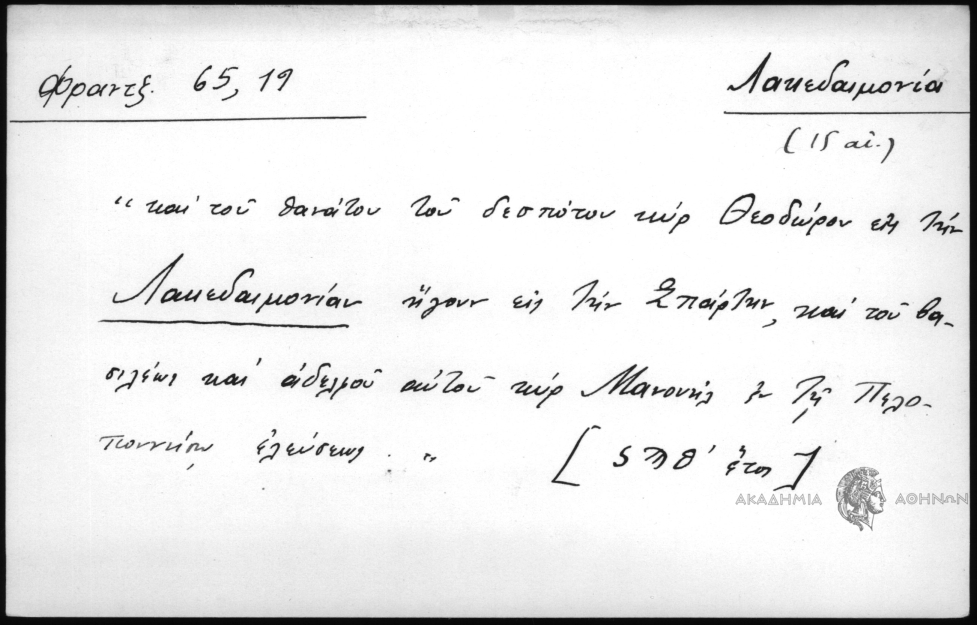 Φραντζ. 65, 19
Λακεδαιμονία
(15 αἰ.)
"καὶ τοῦ θανάτου τοῦ δεσπότου κὺρ Θεοδώρου εἰς τὴν
Λακεδαιμονίαν ἤγουν εἰς τὴν Σπάρτην, καὶ τοῦ βα-
σιλέως καὶ ἀδελφοῦ αὐτοῦ κὺρ Μανουὴλ ἐν τῇ Πελο-
ποννήσῳ ἐλεύσεως."
[ϛ Ϡ θ' ἔτος]
ΑΚΑΔΗΜΙΑ ΑΘΗΝΩΝ